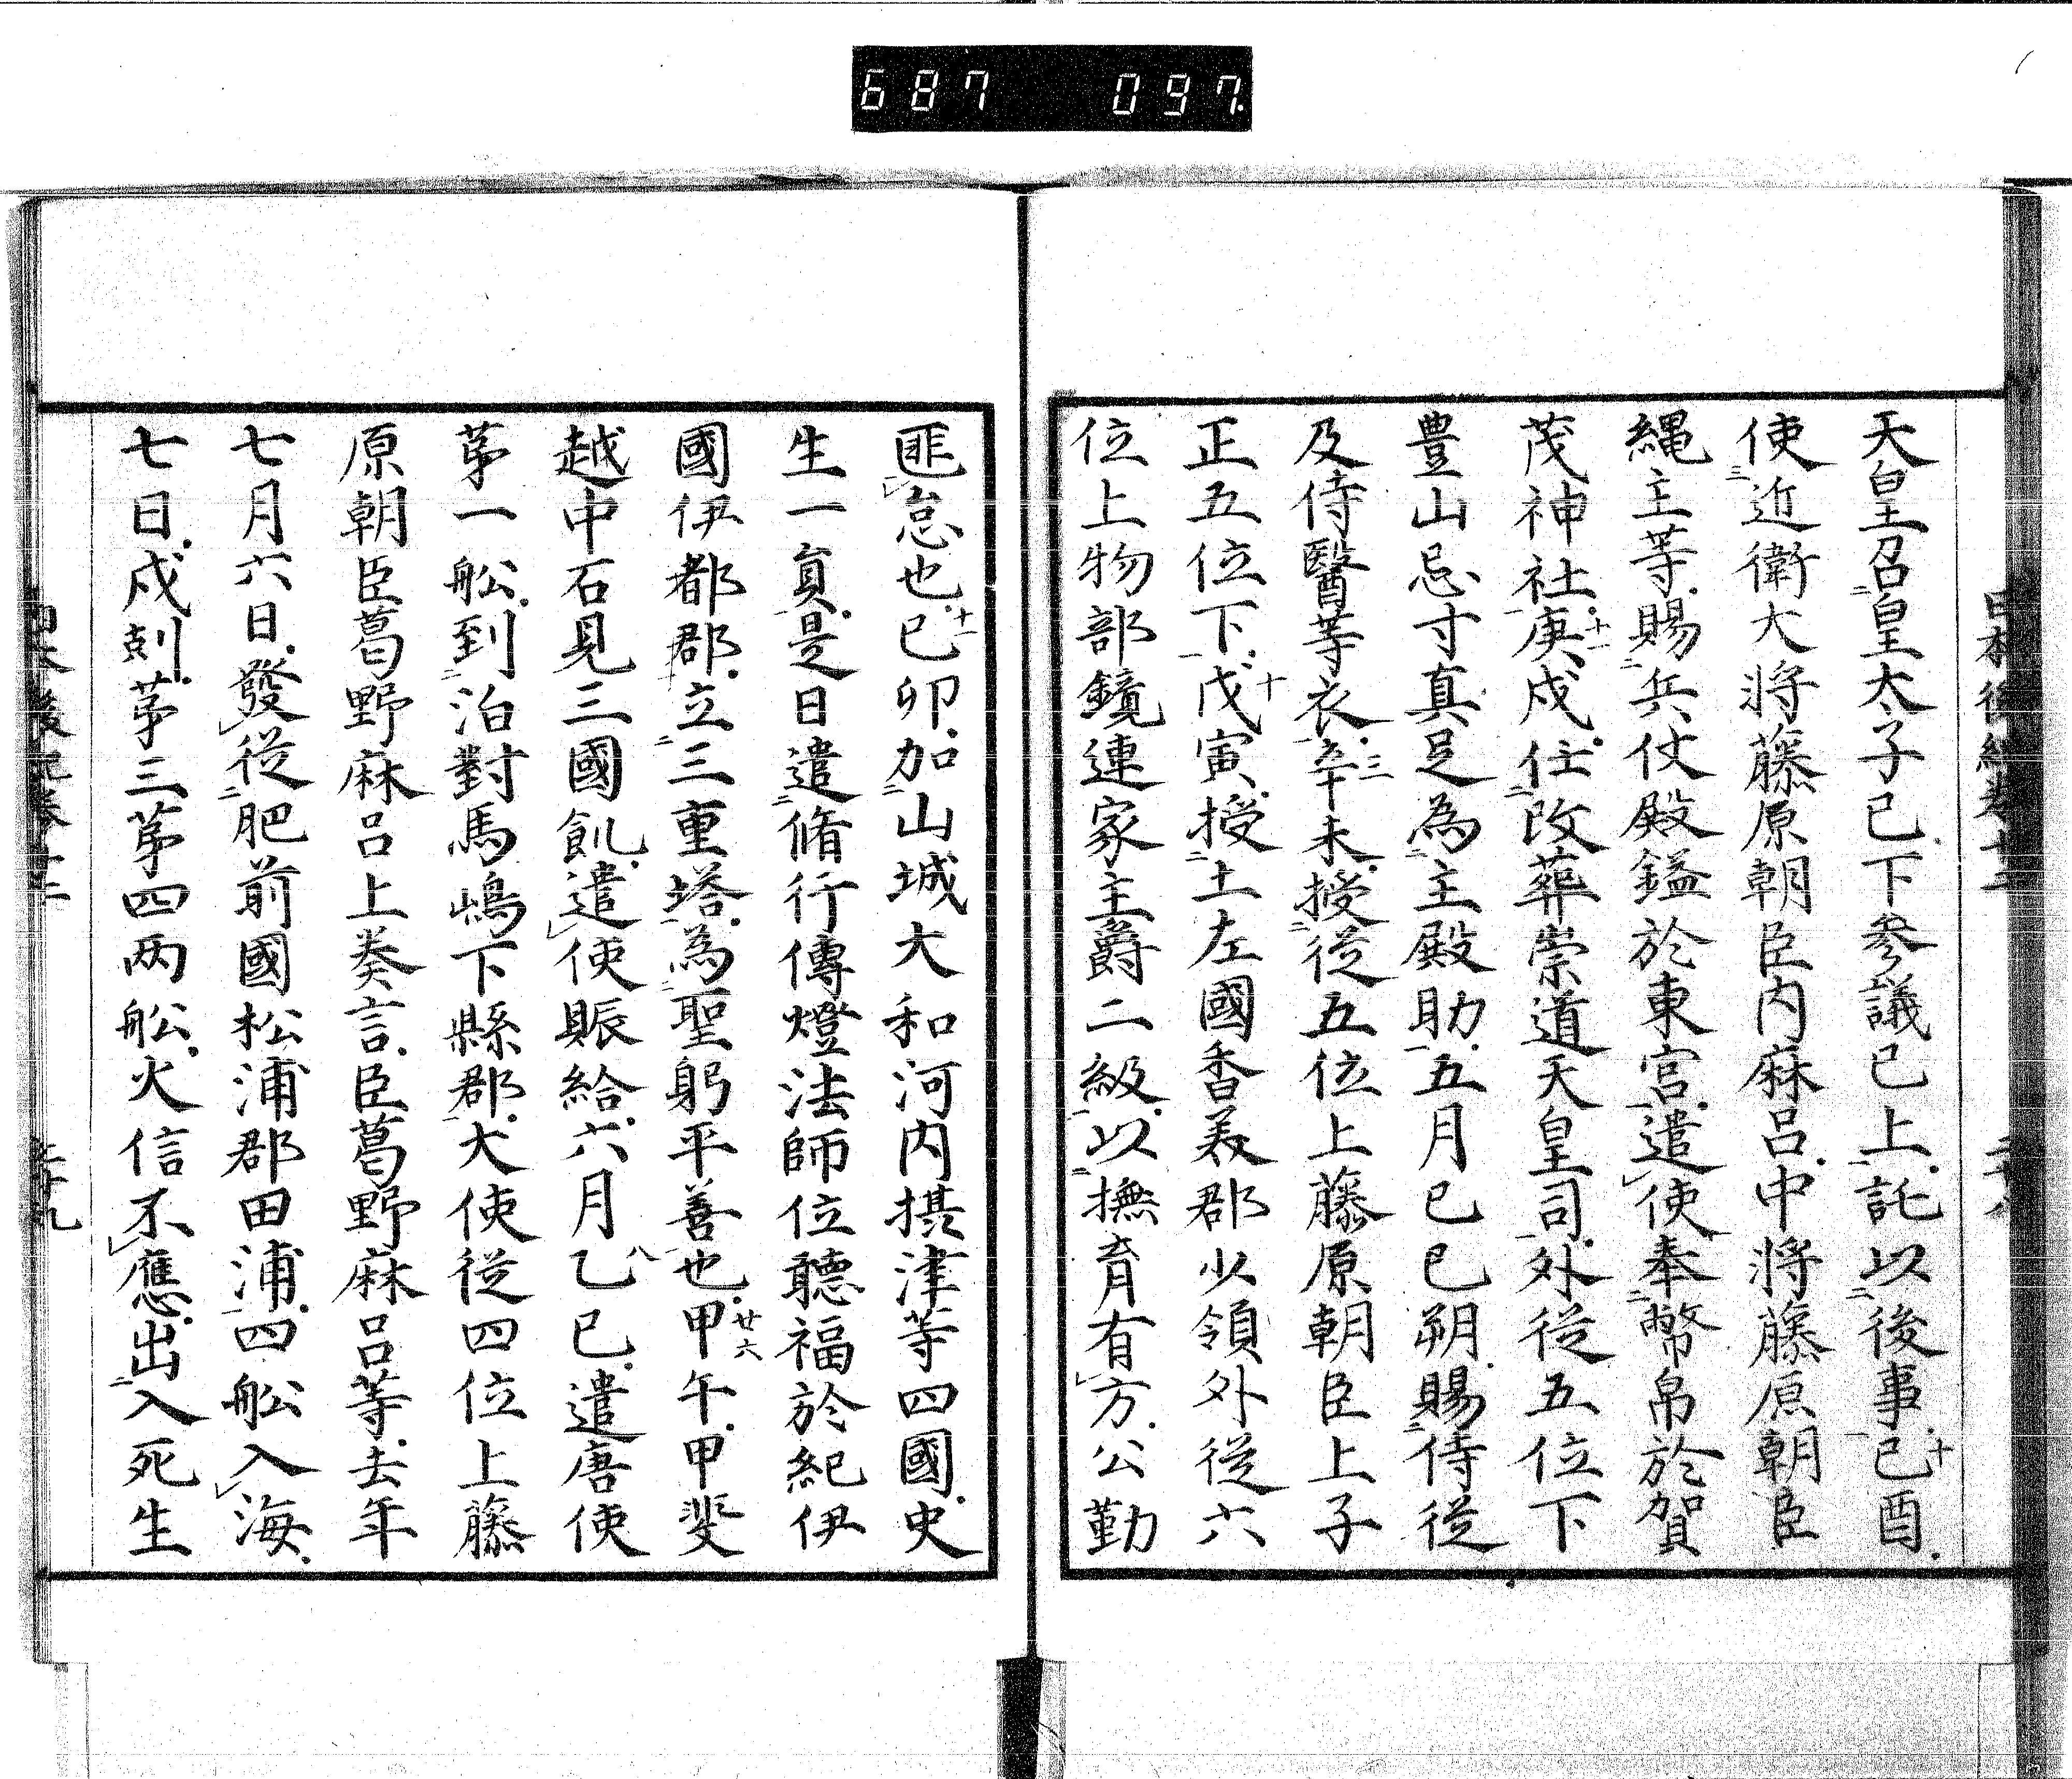 687 097
日本後紀卷十二 二十八
天皇召皇太子已下參議已上託以後事己酉
使近衛大將藤原朝臣内麻呂中將藤原朝臣
縄主等賜兵仗殿鎰於東宮遣使奉幣帛於賀
茂神社庚戌任改葬崇道天皇司外從五位下
豊山忌寸真足為主殿助五月己巳朔賜侍從
及侍醫等衣辛未授從五位上藤原朝臣上子
正五位下戊寅授土左國香美郡少領外從六
位上物部鏡連家主爵二級以撫育有方公勤
匪怠也己卯加山城大和河内摂津等四國史
生一員是日遣脩行傳燈法師位聽福於紀伊
國伊都郡立三重塔為聖躬平善也甲午甲斐
越中石見三國飢遣使賑給六月乙巳遣唐使
苐一舩到泊對馬嶋下縣郡大使從四位上藤
原朝臣葛野麻呂上奏言臣葛野麻呂等去年
七月六日發從肥前國松浦郡田浦四舩入海
七日戌剋苐三苐四两舩火信不應出入死生
日本後紀卷十二 二十九